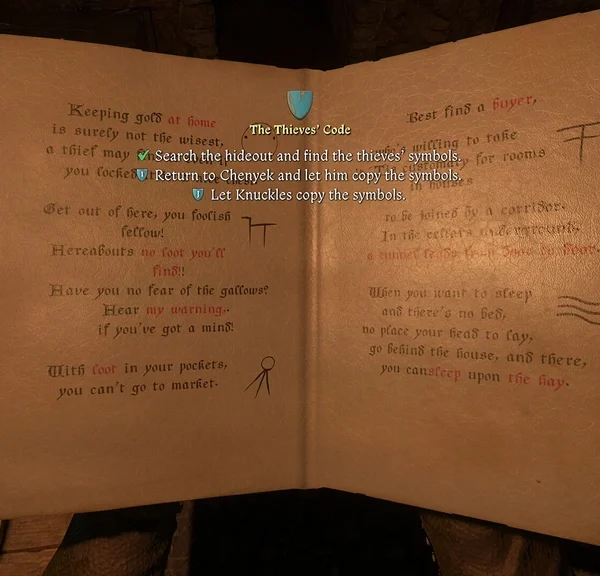 Keeping gold at home
is surely not the wisest,
a thief may
you locked
Get out of here, you foolish
fellow!
Hereabouts no loot you'll
find!!
Have you no fear of the gallows?
Hear my warning,
if you've got a mind!
With loot in your pockets,
you can't go to market.
The Thieves' Code
Search the hideout and find the thieves' symbols.
Return to Chenyek and let him copy the symbols.
Let Knuckles copy the symbols.
Best find a buyer,
who's willing to take
customary for rooms
in houses
to be joined by a corridor.
In the cellars underground,
a tunnel leads from door to door.
When you want to sleep
and there's no bed,
no place your head to lay,
go behind the house, and there,
you can sleep upon the hay.